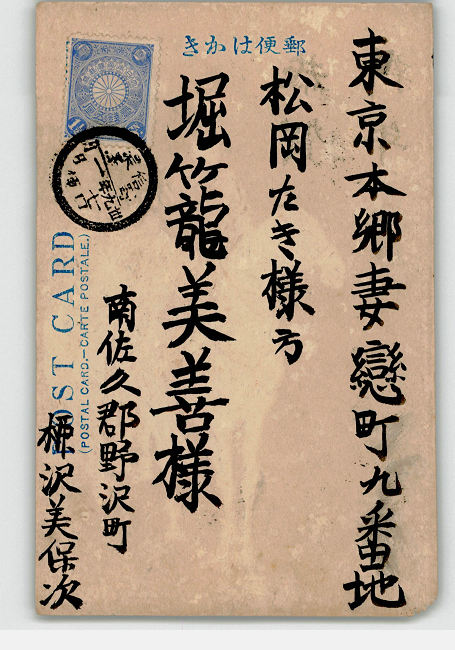 郵便はかき
東京本郷妻戀町九番地
松岡たき様方
堀籠美善様
南佐久郡野沢町
柳沢美保次
POST CARD
(POSTAL CARD.—CARTE POSTALE.)